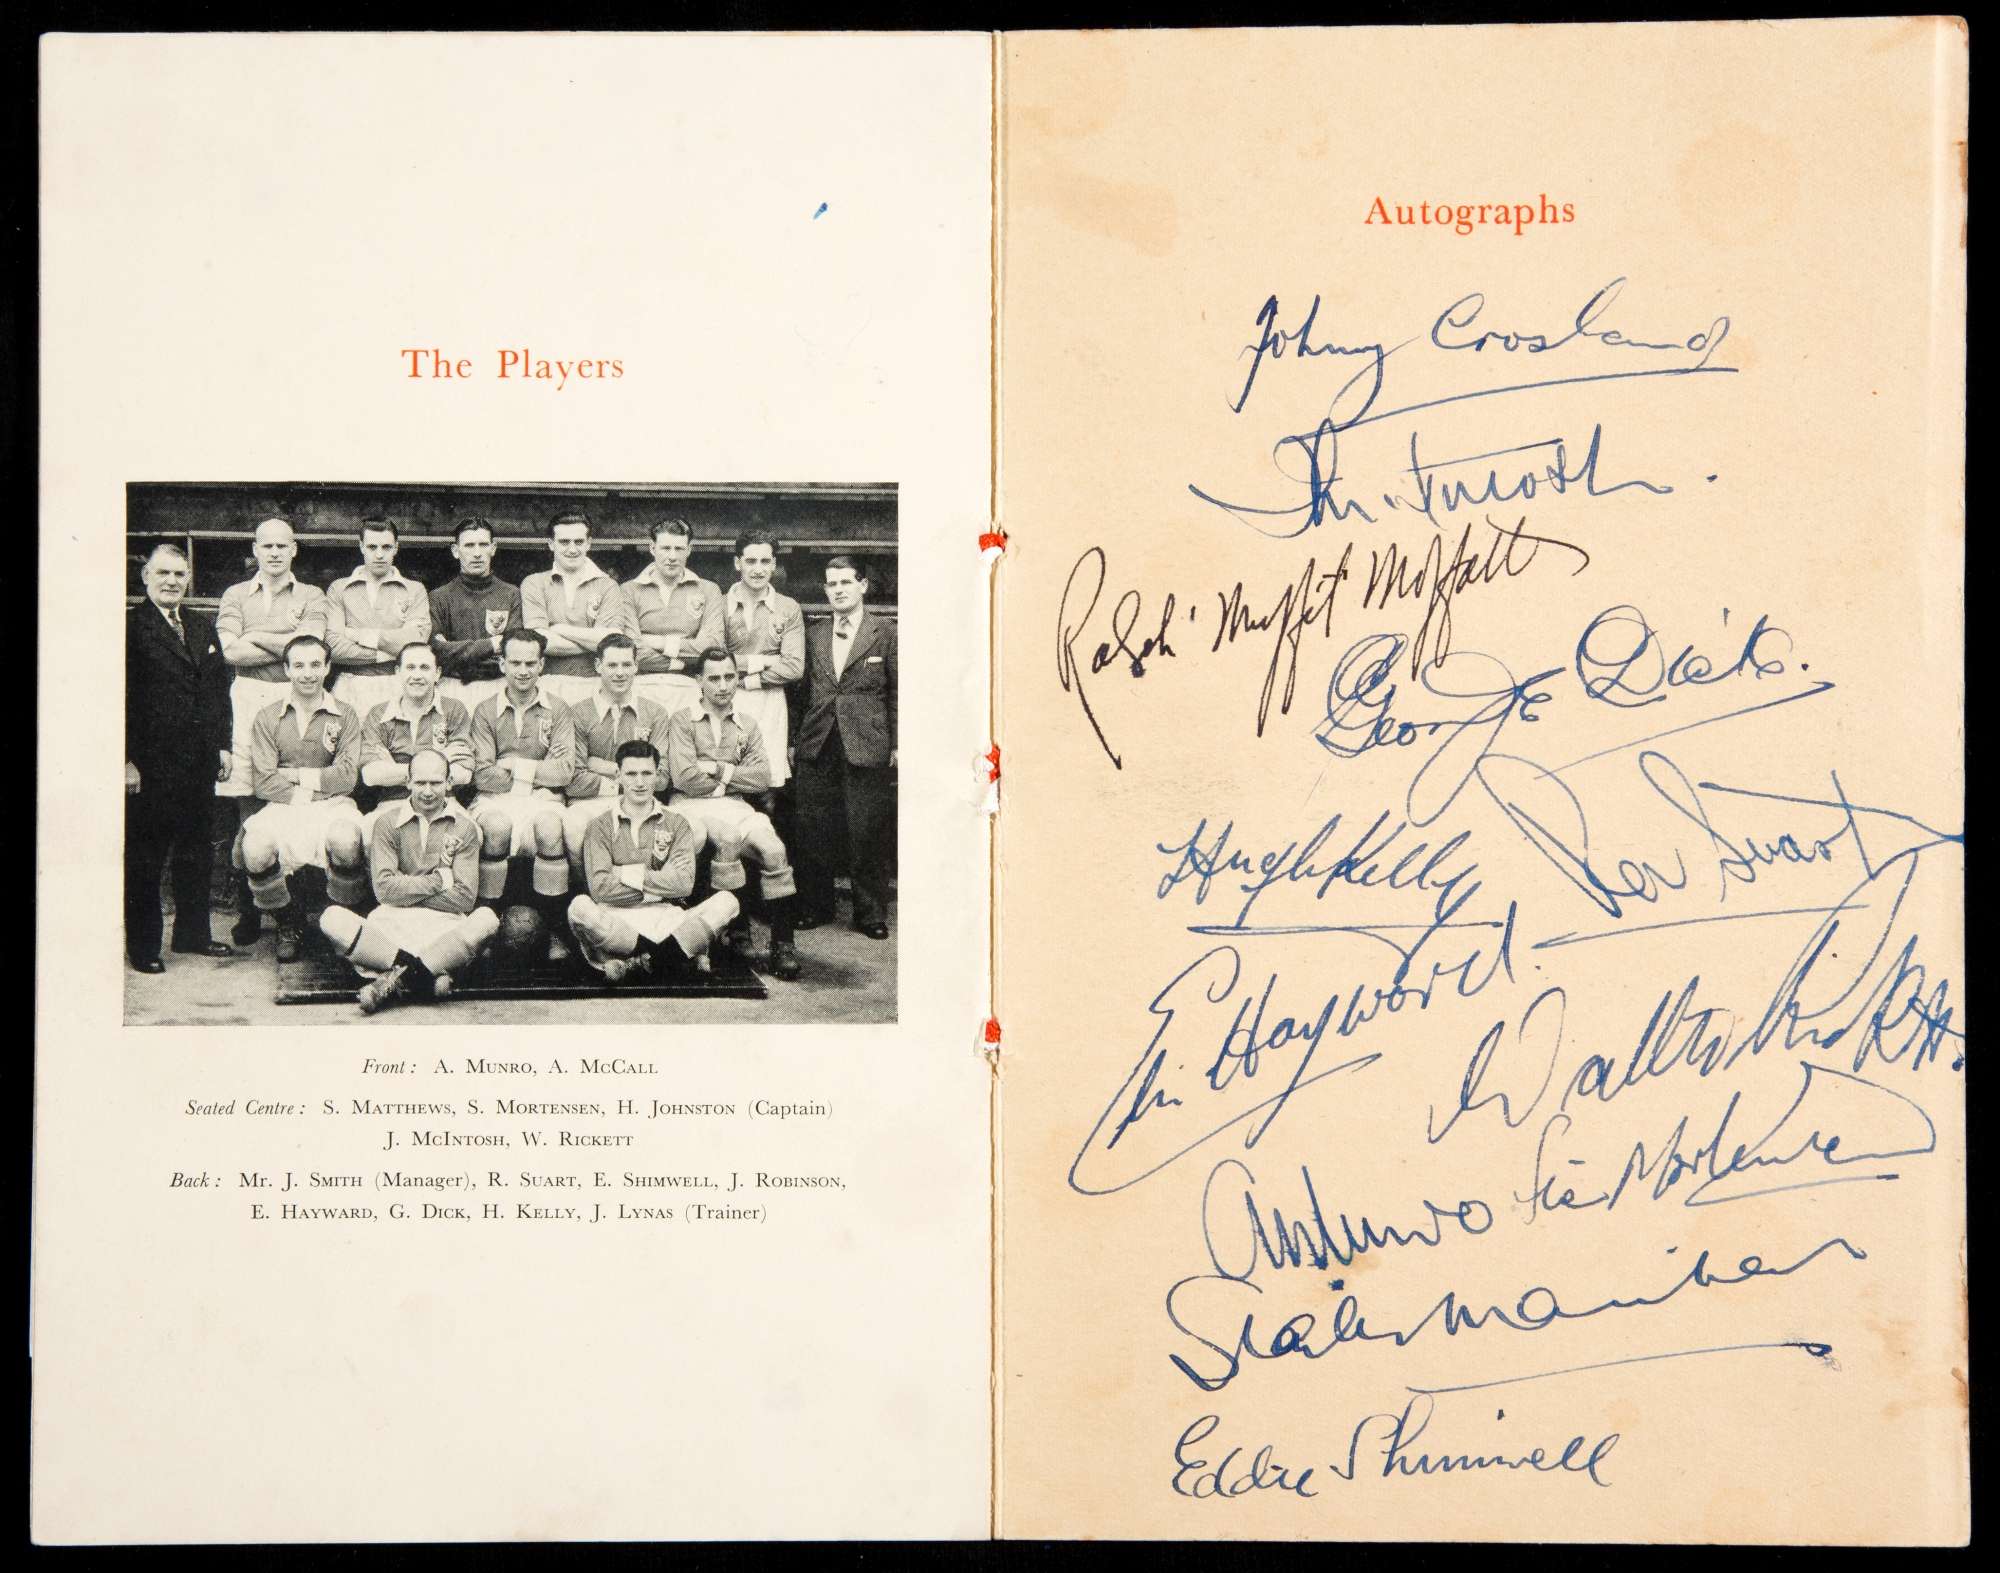 The Players
Front: A. Munro, A. McCall
Seated Centre: S. Matthews, S. Mortensen, H. Johnston (Captain)
J. McIntosh, W. Rickett
Back: Mr. J. Smith (Manager), R. Suart, E. Shimwell, J. Robinson,
E. Hayward, G. Dick, H. Kelly, J. Lynas (Trainer)
Autographs
Johnny Crosland
McIntosh.
Ralph "Muffit" Moffatt
George Dick.
Hugh Kelly
Ron Suart
Eric Hayward.
Walter Rickett.
Stan Mortensen
A Munro
Stanley Matthews
Eddie Shimwell